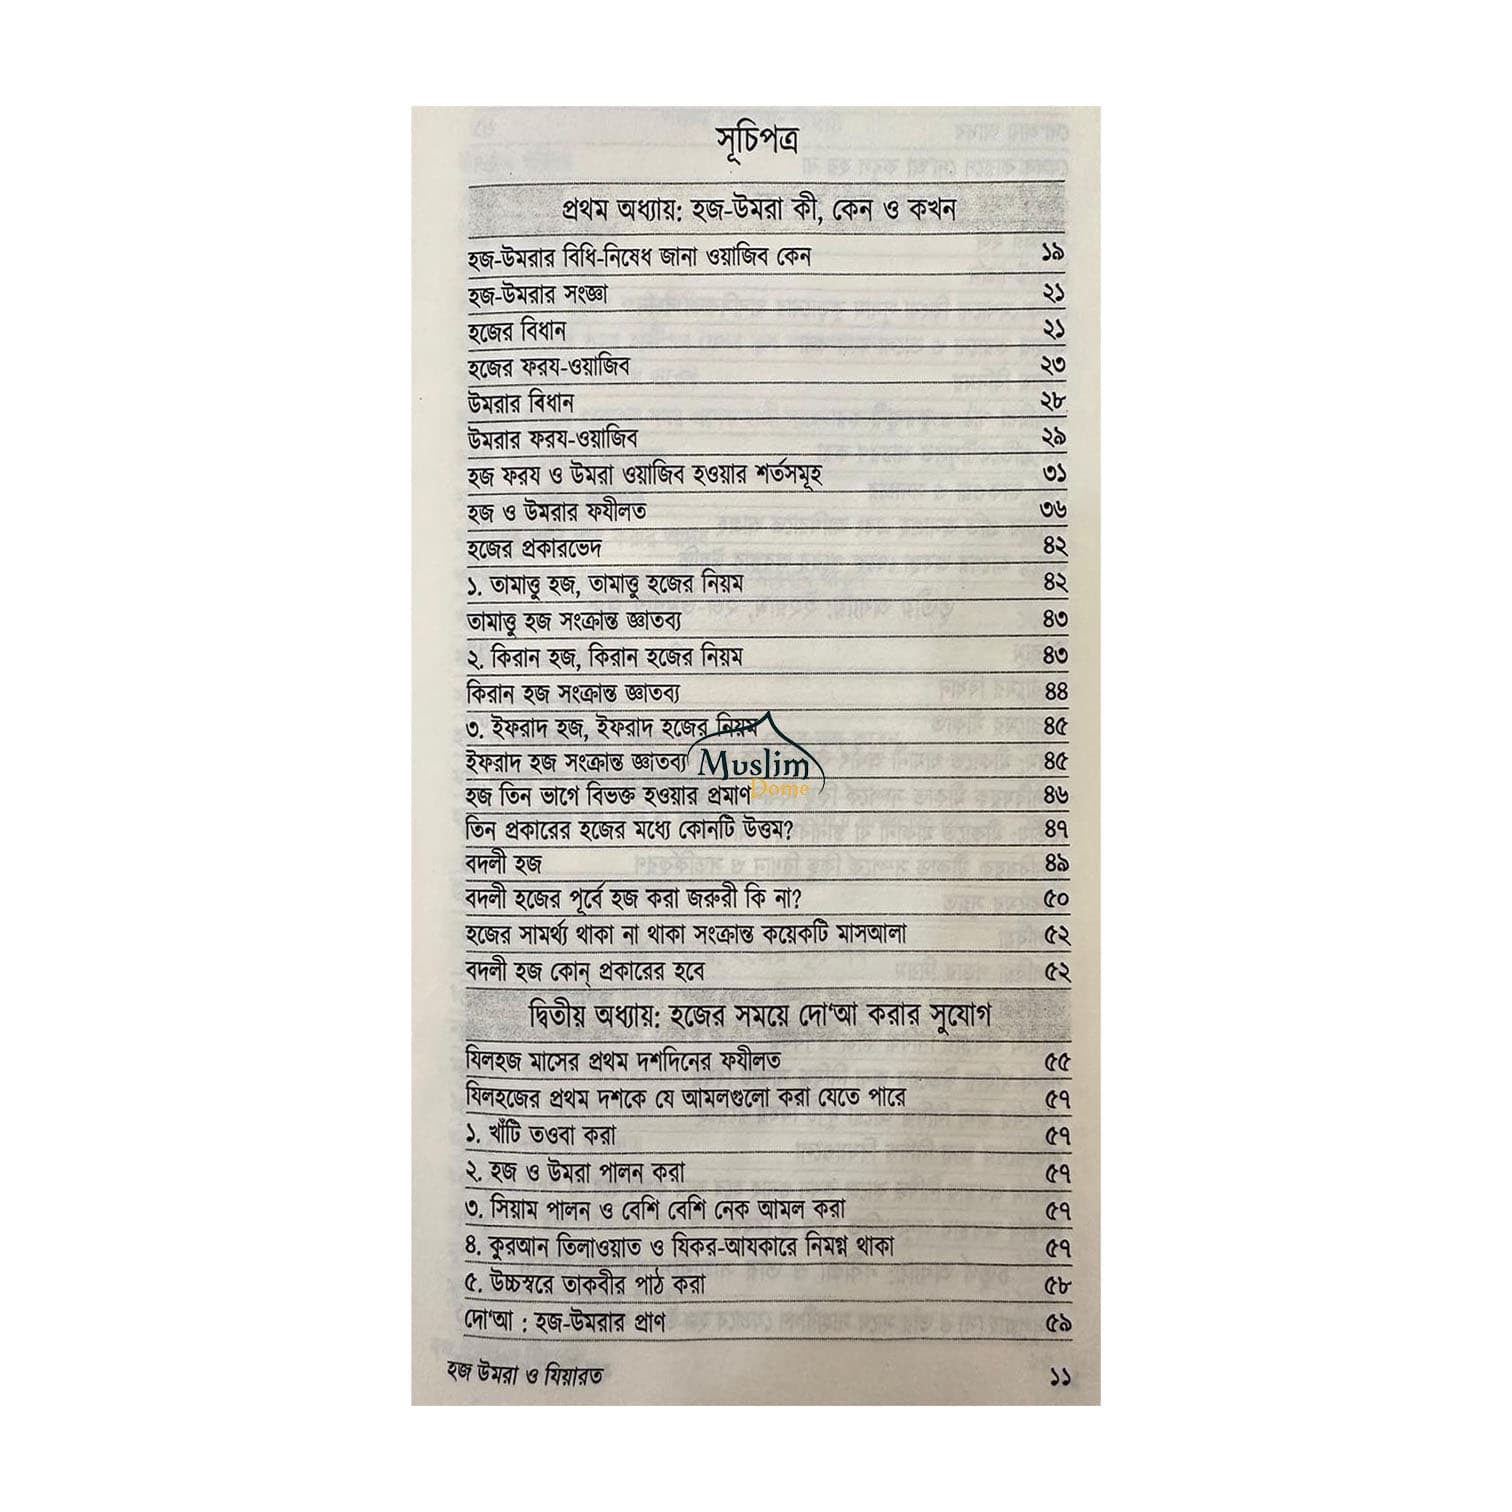 সূচিপত্র
প্রথম অধ্যায়: হজ-উমরা কী, কেন ও কখন
হজ-উমরার বিধি-নিষেধ জানা ওয়াজিব কেন ১৯
হজ-উমরার সংজ্ঞা ২১
হজের বিধান ২১
হজের ফরয-ওয়াজিব ২৩
উমরার বিধান ২৮
উমরার ফরয-ওয়াজিব ২৯
হজ ফরয ও উমরা ওয়াজিব হওয়ার শর্তসমূহ ৩১
হজ ও উমরার ফযীলত ৩৬
হজের প্রকারভেদ ৪২
১. তামাত্তু হজ, তামাত্তু হজের নিয়ম ৪২
তামাত্তু হজ সংক্রান্ত জ্ঞাতব্য ৪৩
২. কিরান হজ, কিরান হজের নিয়ম ৪৩
কিরান হজ সংক্রান্ত জ্ঞাতব্য ৪৪
৩. ইফরাদ হজ, ইফরাদ হজের নিয়ম ৪৫
ইফরাদ হজ সংক্রান্ত জ্ঞাতব্য ৪৫
Muslim
Dome
হজ তিন ভাগে বিভক্ত হওয়ার প্রমাণ ৪৬
তিন প্রকারের হজের মধ্যে কোনটি উত্তম? ৪৭
বদলী হজ ৪৯
বদলী হজের পূর্বে হজ করা জরুরী কি না? ৫০
হজের সামর্থ্য থাকা না থাকা সংক্রান্ত কয়েকটি মাসআলা ৫২
বদলী হজ কোন্ প্রকারের হবে ৫২
দ্বিতীয় অধ্যায়: হজের সময়ে দো‘আ করার সুযোগ
যিলহজ মাসের প্রথম দশদিনের ফযীলত ৫৫
যিলহজের প্রথম দশকে যে আমলগুলো করা যেতে পারে ৫৭
১. খাঁটি তওবা করা ৫৭
২. হজ ও উমরা পালন করা ৫৭
৩. সিয়াম পালন ও বেশি বেশি নেক আমল করা ৫৭
৪. কুরআন তিলাওয়াত ও যিকর-আযকারে নিমগ্ন থাকা ৫৭
৫. উচ্চস্বরে তাকবীর পাঠ করা ৫৮
দো‘আ : হজ-উমরার প্রাণ ৫৯
হজ উমরা ও যিয়ারত ১১